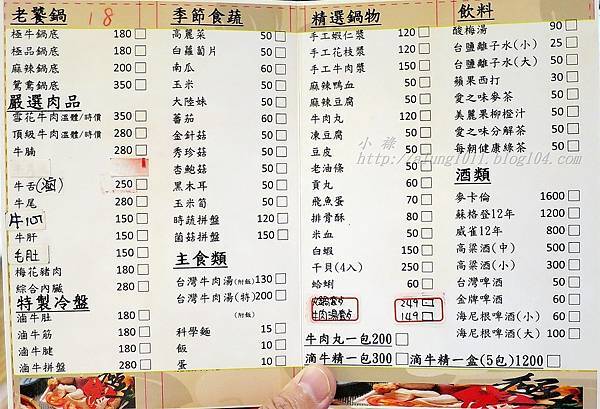 老饕鍋 18
極牛鍋底 180
極品鍋底 180
麻辣鍋底 200
鴛鴦鍋底 350
嚴選肉品
雪花牛肉溫體/時價 350
頂級牛肉溫體/時價 280
牛腩 280
牛舌(滷) 250
牛尾 280
牛心 150
牛肝 150
毛肚 150
梅花豬肉 180
綜合內臟 280
特製冷盤
滷牛肚 180
滷牛筋 180
滷牛腱 180
滷牛拼盤 280
季節食蔬
高麗菜 50
白蘿蔔片 50
南瓜 60
玉米 50
大陸妹 50
蕃茄 60
金針菇 50
秀珍菇 50
杏鮑菇 50
黑木耳 50
玉米筍 50
時蔬拼盤 120
菌菇拼盤 150
主食類
台灣牛肉湯(附飯) 130
台灣牛肉湯(特) 200
(附飯)
科學麵 15
飯 10
蛋 10
精選鍋物
手工蝦仁漿 120
手工花枝漿 120
手工牛肉漿 150
麻辣鴨血 50
麻辣豆腐 50
牛肉丸 120
凍豆腐 50
豆皮 50
老油條 50
貢丸 60
飛魚蛋 70
排骨酥 80
米血 50
白蝦 150
干貝(4入) 250
蛤蜊 60
火鍋套餐 249
牛肉湯套餐 149
牛肉丸一包200
滴牛精一包300
滴牛精一盒(5包)1200
飲料
酸梅湯 90
台鹽離子水(小) 25
台鹽離子水(大) 50
蘋果西打 30
愛之味麥茶 50
美麗果柳橙汁 50
愛之味分解茶 50
每朝健康綠茶 50
酒類
麥卡倫 1600
蘇格登12年 1200
威雀12年 800
高粱酒(中) 500
高粱酒(小) 300
台灣啤酒 50
金牌啤酒 50
海尼根啤酒(小) 60
海尼根啤酒(大) 100
小祿
http://atung1011.blog104.com